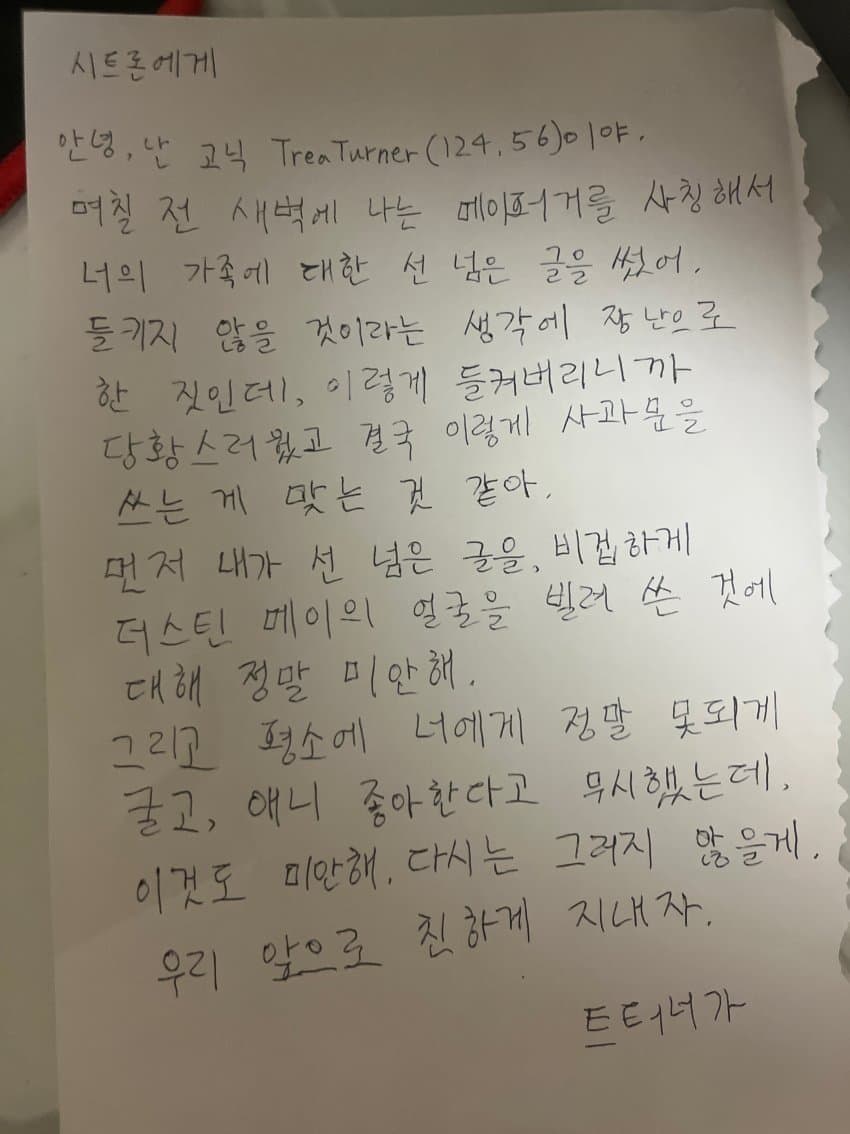 시트론에게
안녕, 난 고닉 TreaTurner(124.56)이야.
며칠 전 새벽에 나는 메이퍼거를 사칭해서
너의 가족에 대한 선 넘은 글을 썼어.
들키지 않을 것이라는 생각에 장난으로
한 짓인데, 이렇게 들켜버리니까
당황스러웠고 결국 이렇게 사과문을
쓰는 게 맞는 것 같아.
먼저 내가 선 넘은 글을, 비겁하게
더스틴 메이의 얼굴을 빌려 쓴 것에
대해 정말 미안해.
그리고 평소에 너에게 정말 못되게
굴고, 애니 좋아한다고 무시했는데,
이것도 미안해. 다시는 그러지 않을게.
우리 앞으로 친하게 지내자.
트터너가